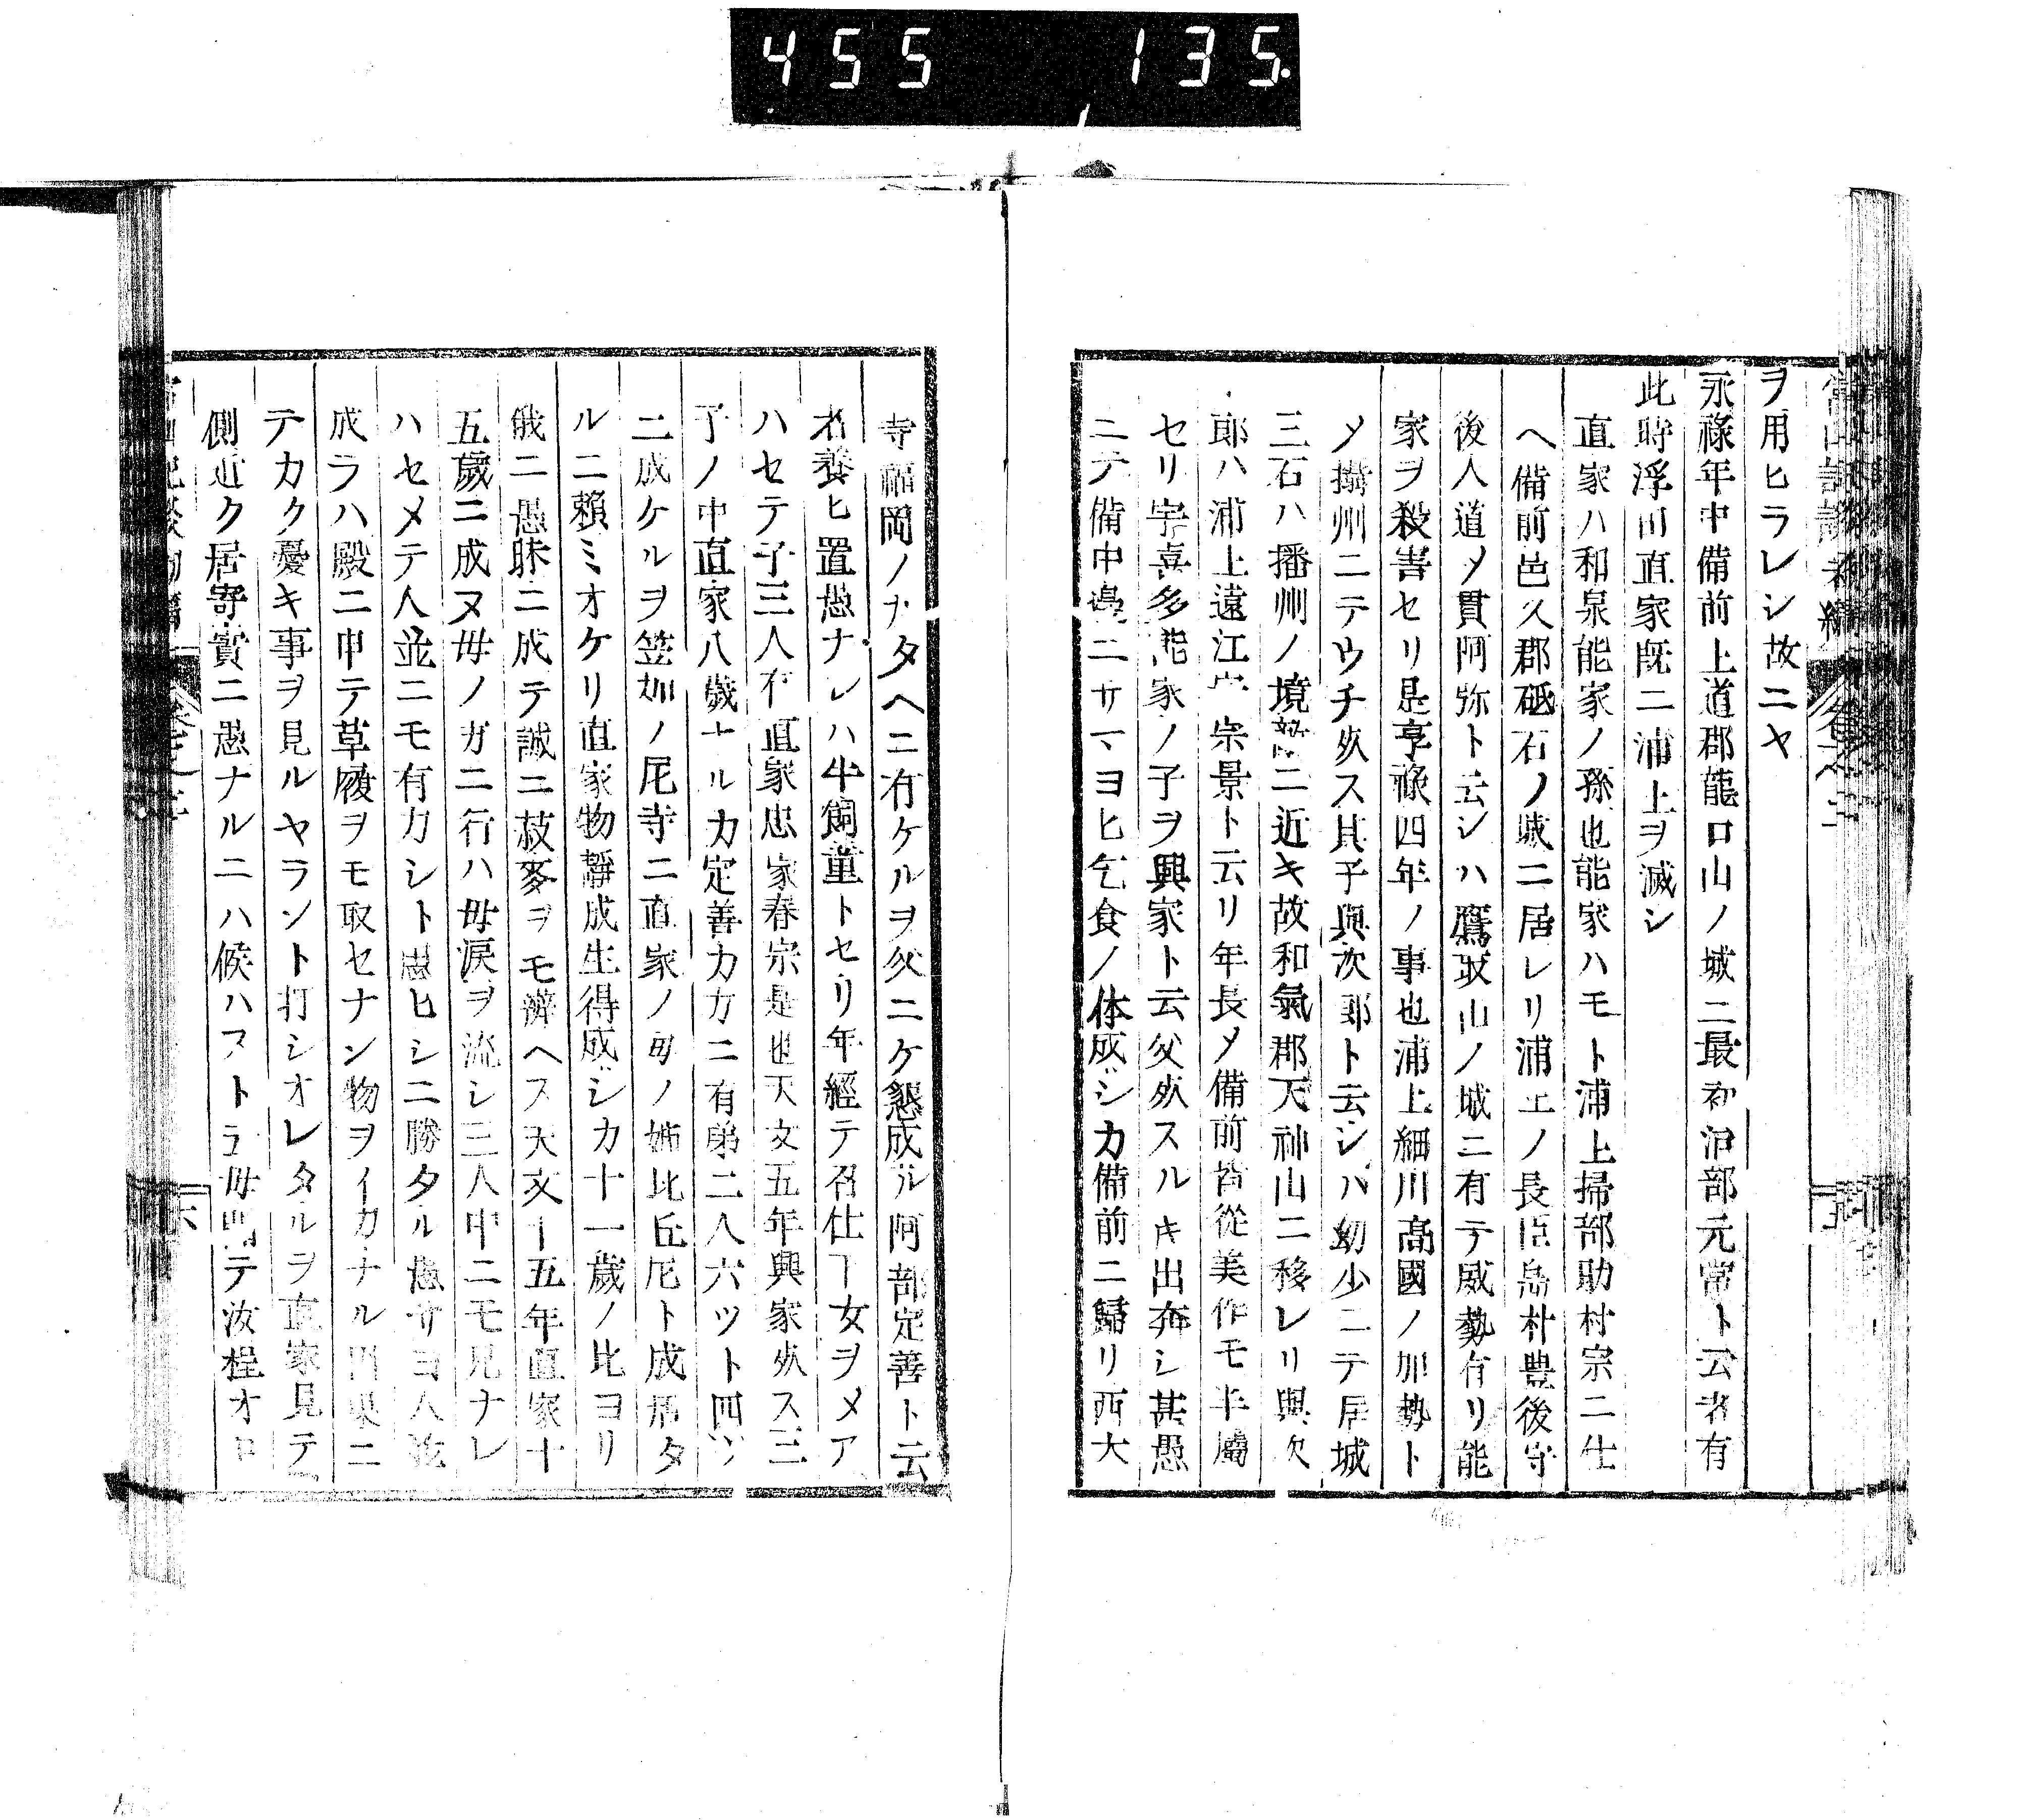 455 135
ヲ用ヒラレシ故ニヤ
永祿年中備前上道郡龍口山ノ城ニ最初沼部元常ト云者有
此時浮田直家既ニ浦上ヲ滅シ
直家ハ和泉能家ノ孫也能家ハモト浦上掃部助村宗ニ仕
ヘ備前邑久郡砥石ノ城ニ居レリ浦上ノ長臣島村豊後守
後人道メ貫阿弥ト云シハ鷹取山ノ城ニ有テ威勢有リ能
家ヲ殺害セリ是享祿四年ノ事也浦上細川高國ノ加勢ト
メ攝州ニテウチ死ス其子與次郎ト云シハ幼少ニテ居城
三石ハ播州ノ境ニ近キ故和氣郡天神山ニ移レリ與次
郎ハ浦上遠江守宗景ト云リ年長メ備前皆從美作モ半屬
セリ宇喜多能家ノ子ヲ興家ト云父死スルキ出奔シ甚愚
ニテ備中邊ニサマヨヒ乞食ノ体成シカ備前ニ歸リ西大
寺福岡ノカタヘニ有ケルヲ父ニケ懇成ル阿部定善ト云
者養ヒ置愚ナレハ牛飼童トセリ年經テ召仕フ女ヲメア
ハセテ子三人有直家忠家春宗是也天文五年興家死ス三
子ノ中直家八歳ナルカ定善カ方ニ有弟二人六ツト四ツ
ニ成ケルヲ笠加ノ尼寺ニ直家ノ母ノ姉比丘尼ト成居タ
ルニ賴ミオケリ直家物靜成生得成シカ十一歳ノ比ヨリ
俄ニ愚昧ニ成テ誠ニ菽麥ヲモ辨ヘス天文十五年直家十
五歳ニ成ヌ母ノ方ニ行ハ母淚ヲ流シ三人中ニモ見ナレ
ハセメテ人並ニモ有カシト思ヒシニ勝タル愚サヨ人汝
成ラハ殿ニ申テ草履ヲモ取セナン物ヲイカナル因果ニ
テカク憂キ事ヲ見ルヤラント打シオレタルヲ直家見テ
側近ク居寄實ニ愚ナルニハ候ハストテ母聞テ汝程オロ